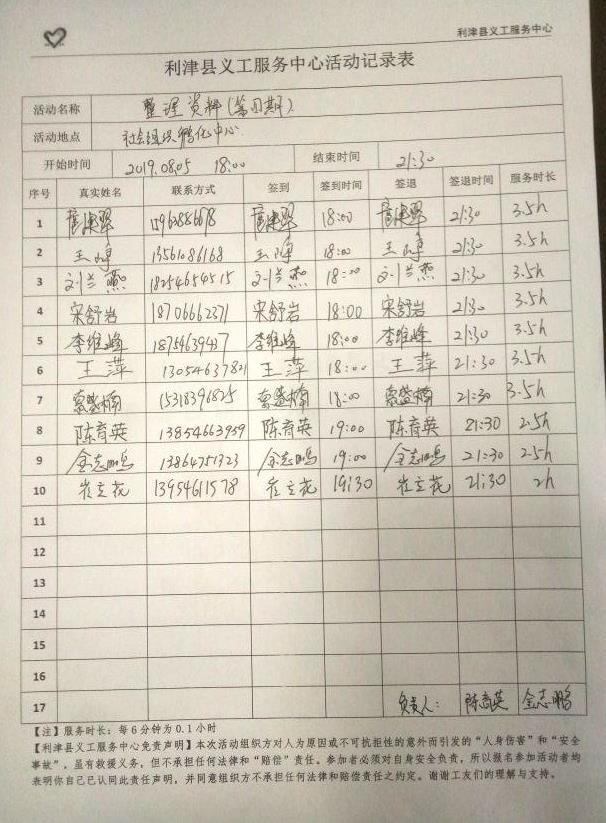 利津县义工服务中心
利津县义工服务中心活动记录表
活动名称 整理资料(第四期)
活动地点 社会组织孵化中心
开始时间 2019.08.05 18:00 结束时间 21:30
序号 真实姓名 联系方式 签到 签到时间 签退 签退时间 服务时长
1 18:00 21:30 3.5h
2 王 13561086168 王 18:00 王 21:30 3.5h
3 刘兰燕 18254654515 刘兰燕 18:00 刘兰燕 21:30 3.5h
4 宋舒岩 18706662371 宋舒岩 18:00 宋舒岩 21:30 3.5h
5 李维峰 李维峰 18:00 李维峰 21:30 3.5h
6 王萍 13054637821 王萍 18:00 王萍 21:30 3.5h
7 15318396825 18:00 21:30 3.5h
8 陈育英 13854663959 陈育英 19:00 陈育英 21:30 2.5h
9 金志鹏 13864751323 金志鹏 19:00 金志鹏 21:30 2.5h
10 崔立花 13954611578 崔立花 19:30 崔立花 21:30 2h
11
12
13
14
15
16
17 负责人: 陈育英 金志鹏
【注】服务时长:每6分钟为0.1小时
【利津县义工服务中心免责声明】本次活动组织方对人为原因或不可抗拒性的意外而引发的“人身伤害”和“安全
事故”,虽有救援义务,但不承担任何法律和“赔偿”责任。参加者必须对自身安全负责,所以报名参加活动者均
表明你自己已认同此责任声明,并同意组织方不承担任何法律和赔偿责任之约定。谢谢工友们的理解与支持。